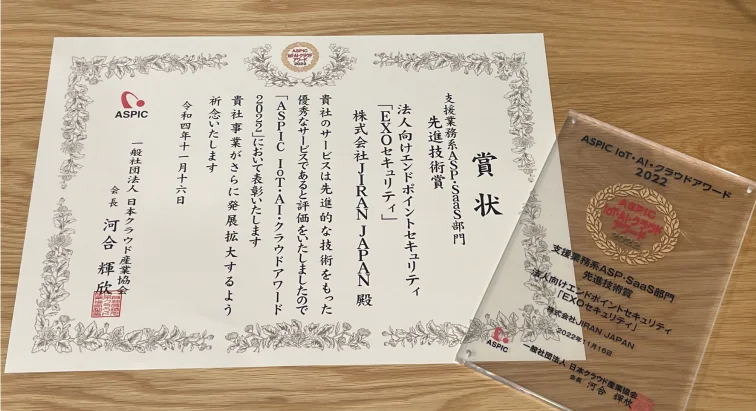 ASPIC
IoT・AI・クラウド
アワード
2022
賞状
支援業務系ASP・SaaS部門
先進技術賞
法人向けエンドポイントセキュリティ
「EXOセキュリティ」
株式会社JIRAN JAPAN 殿
貴社のサービスは先進的な技術をもった
優秀なサービスであると評価をいたしましたので
「ASPIC IoT・AI・クラウドアワード
2022」において表彰いたします
貴社事業がさらに発展拡大するよう
祈念いたします
令和四年十一月十六日
ASPIC
一般社団法人 日本クラウド産業協会
会長 河合 輝欣
ASPIC IoT・AI・クラウドアワード
2022
ASPIC
IoT・AI・クラウド
アワード
2022
支援業務系ASP・SaaS部門
先進技術賞
法人向けエンドポイントセキュリティ
「EXOセキュリティ」
株式会社JIRAN JAPAN
2022年11月16日
ASPIC
一般社団法人 日本クラウド産業協会
会長 河合 輝欣